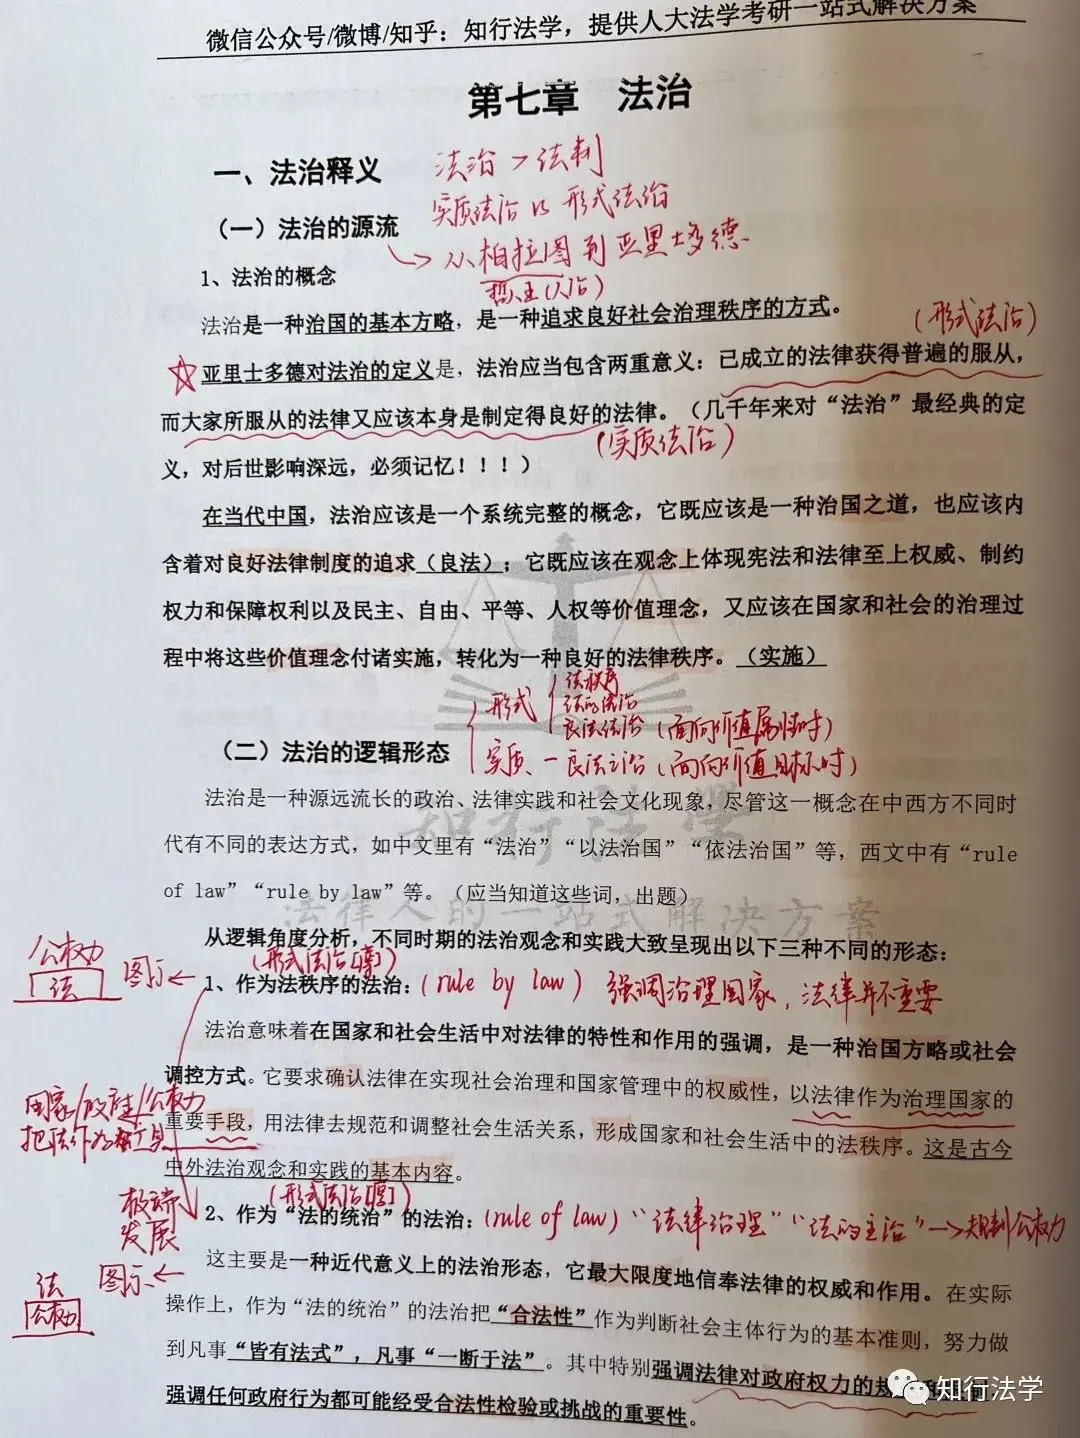 微信公众号/微博/知乎：知行法学，提供人大法学考研一站式解决方案
第七章 法治
一、法治释义
法治 > 法制
实质法治 vs 形式法治
（一）法治的源流
从柏拉图到亚里士多德
哲人王(人治)
1、法治的概念
法治是一种治国的基本方略，是一种追求良好社会治理秩序的方式。
(形式法治)
亚里士多德对法治的定义是，法治应当包含两重意义：已成立的法律获得普遍的服从，
而大家所服从的法律又应该本身是制定得良好的法律。（几千年来对“法治”最经典的定
(实质法治)
义，对后世影响深远，必须记忆！！！）
在当代中国，法治应该是一个系统完整的概念，它既应该是一种治国之道，也应该内
含着对良好法律制度的追求（良法）；它既应该在观念上体现宪法和法律至上权威、制约
权力和保障权利以及民主、自由、平等、人权等价值理念，又应该在国家和社会的治理过
程中将这些价值理念付诸实施，转化为一种良好的法律秩序。（实施）
形式
法秩序
法的统治
良法法治 (面向价值属性时)
（二）法治的逻辑形态
实质 — 良法之治 (面向价值目标时)
法治是一种源远流长的政治、法律实践和社会文化现象，尽管这一概念在中西方不同时
代有不同的表达方式，如中文里有“法治”“以法治国”“依法治国”等，西文中有“rule
of law”“rule by law”等。（应当知道这些词，出题）
知行法学
法律人的一站式解决方案
从逻辑角度分析，不同时期的法治观念和实践大致呈现出以下三种不同的形态：
公权力
法
图示
(形式法治[薄])
1、作为法秩序的法治：
(rule by law) 强调治理国家，法律并不重要
法治意味着在国家和社会生活中对法律的特性和作用的强调，是一种治国方略或社会
调控方式。它要求确认法律在实现社会治理和国家管理中的权威性，以法律作为治理国家的
重要手段，用法律去规范和调整社会生活关系，形成国家和社会生活中的法秩序。这是古今
中外法治观念和实践的基本内容。
国家/政府/公权力
把法作为工具
极端
发展
(形式法治[厚])
2、作为“法的统治”的法治：
(rule of law) “法律治理” “法的主治” → 规制公权力
这主要是一种近代意义上的法治形态，它最大限度地信奉法律的权威和作用。在实际
图示
法
公权力
操作上，作为“法的统治”的法治把“合法性”作为判断社会主体行为的基本准则，努力做
到凡事“皆有法式”，凡事“一断于法”。其中特别强调法律对政府权力的规
强调任何政府行为都可能经受合法性检验或挑战的重要性。
知行法学